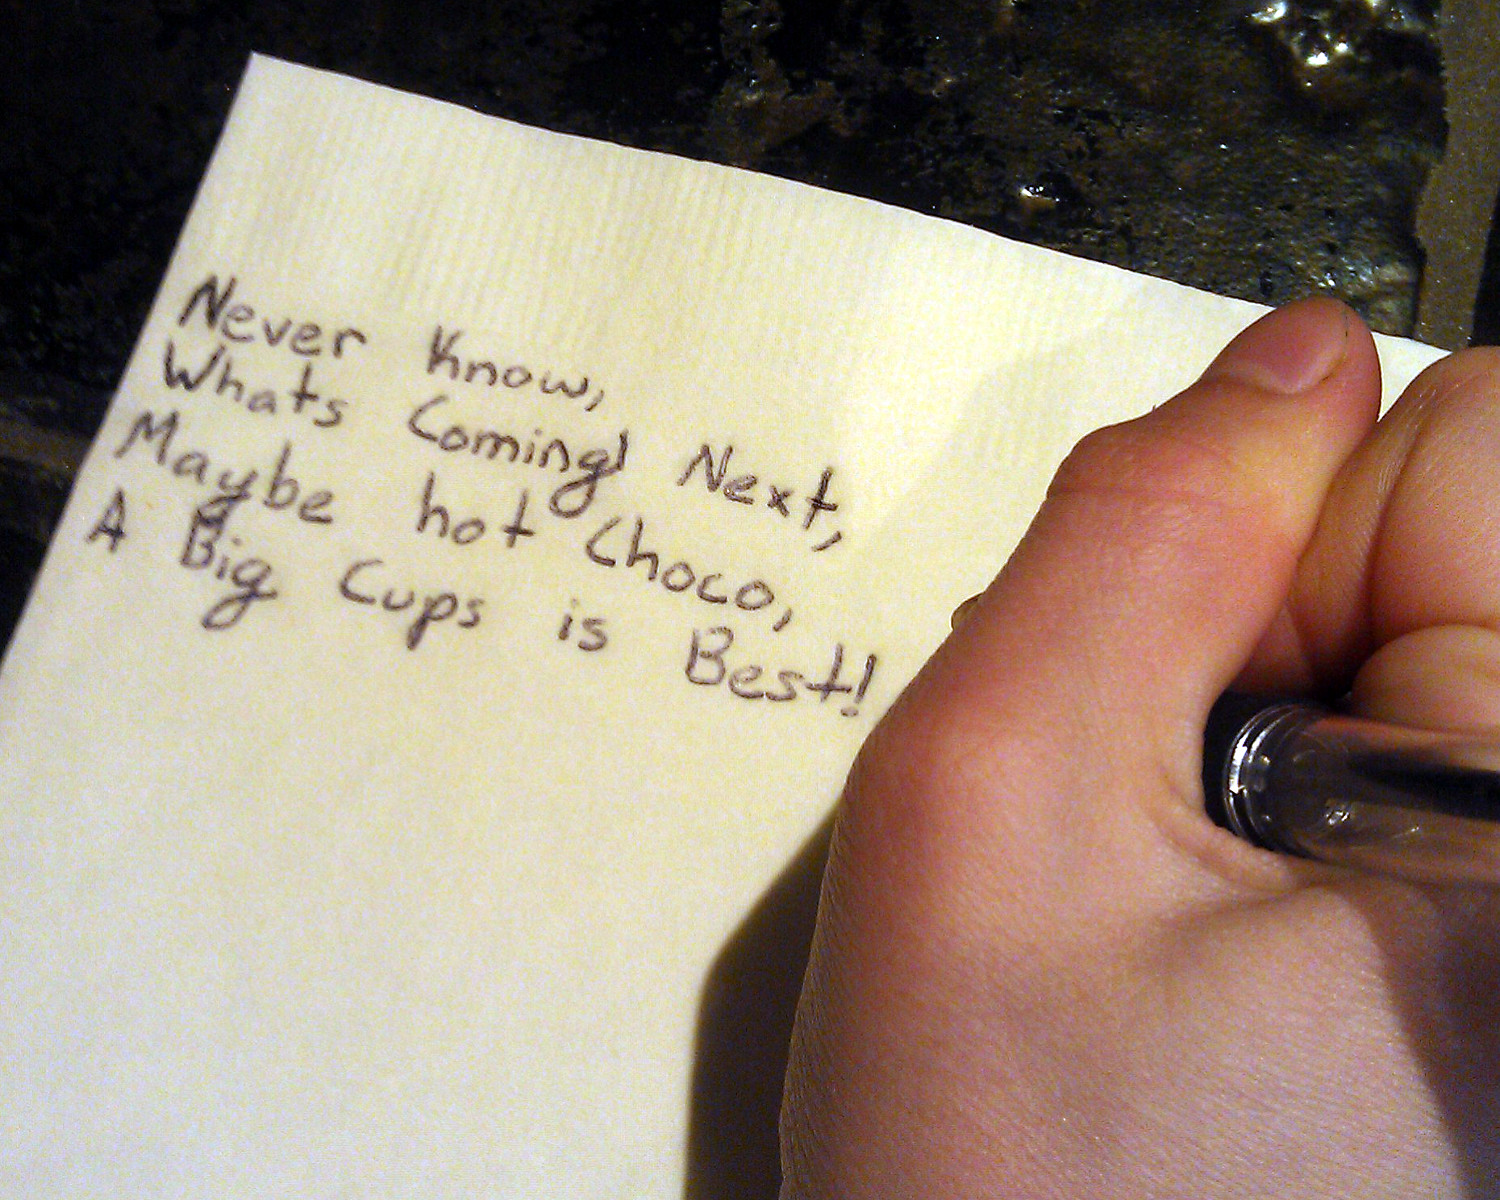 Never Know,
Whats Coming! Next,
Maybe hot Choco,
A Big Cups is Best!